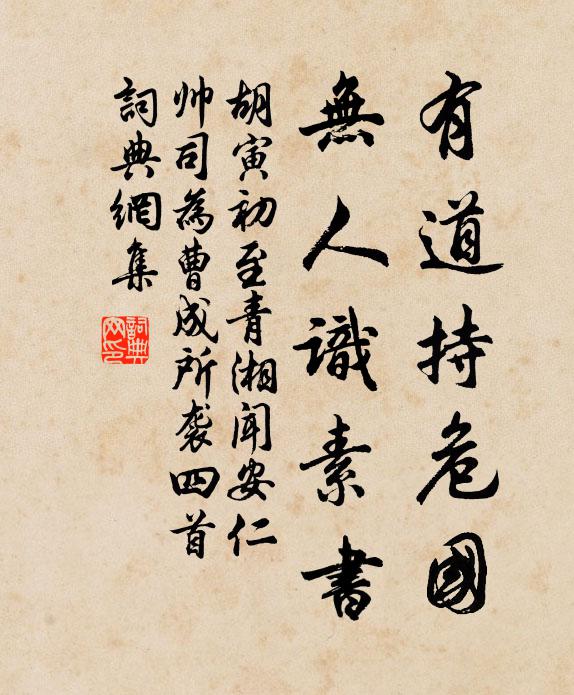 有道持危國
無人識素書
胡寅初至青湘闻安仁
帅司為曹成所袭四首
詞典網集
詞典
网印